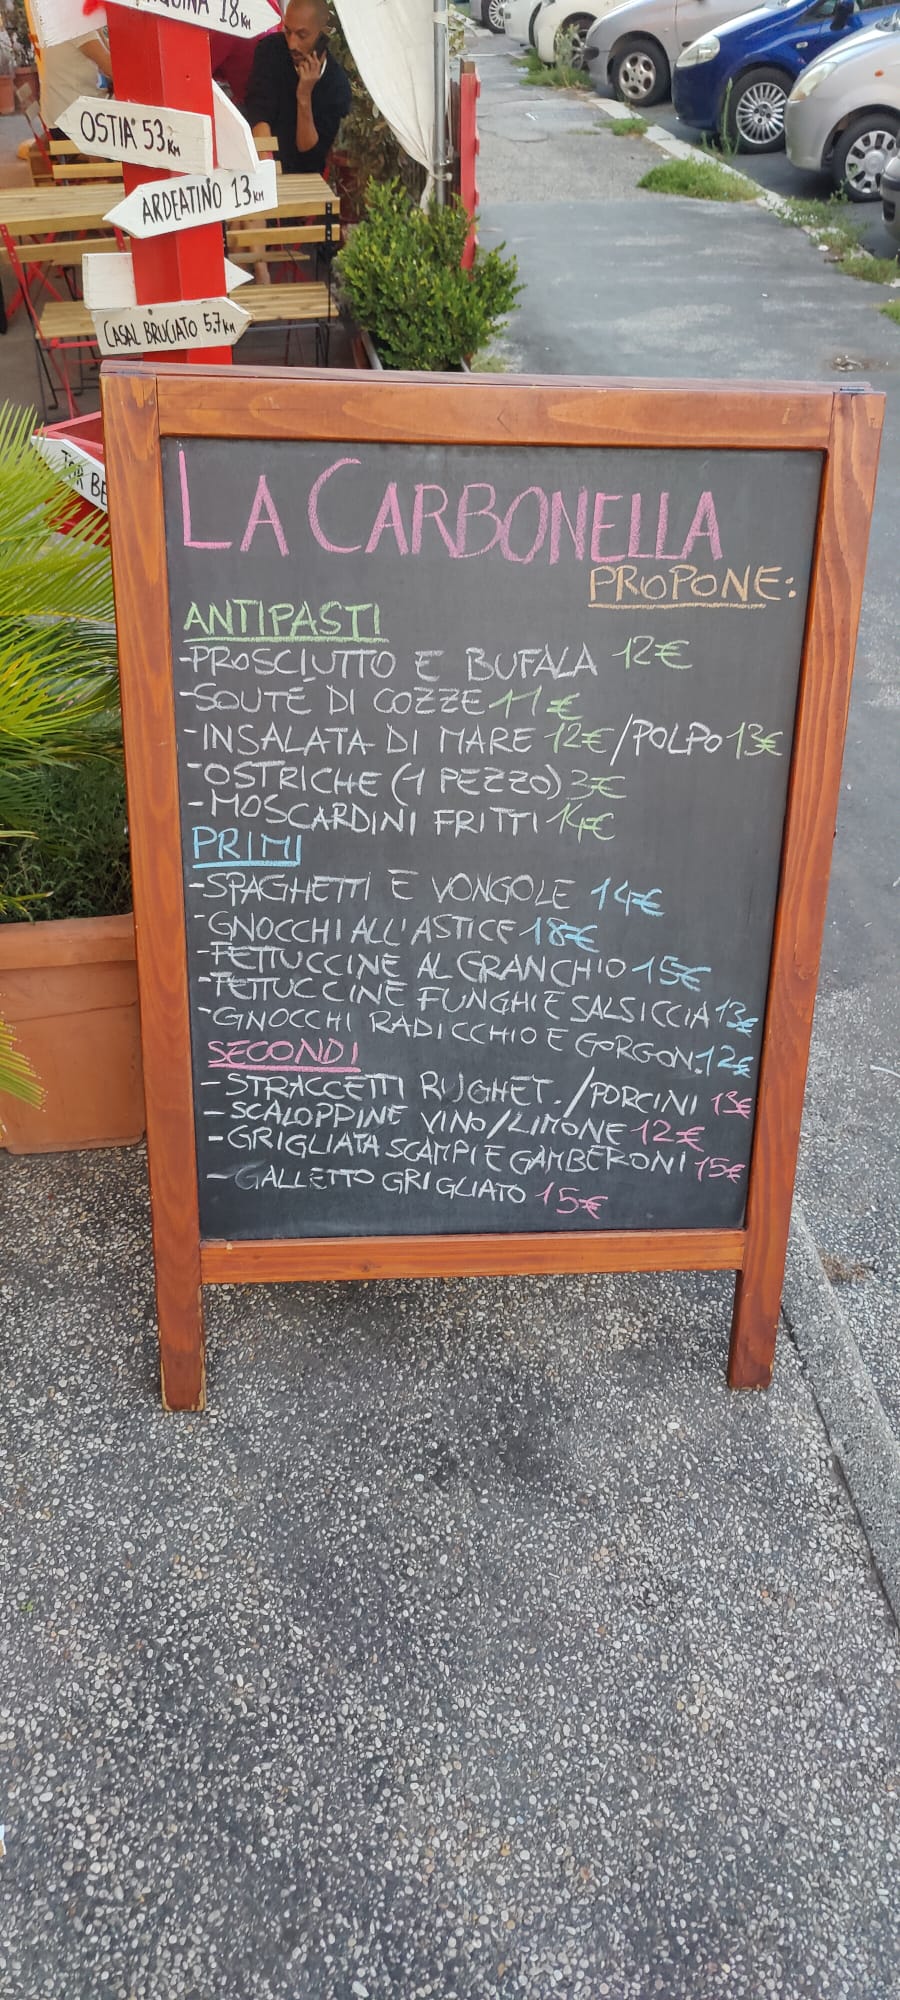 18 KM
OSTIA 53 KM
ARDEATINO 13 KM
CASAL BRUCIATO 5,7 KM
TOR BE
LA CARBONELLA
PROPONE:
ANTIPASTI
-PROSCIUTTO E BUFALA 12€
-SOUTÉ DI COZZE 11€
-INSALATA DI MARE 12€/POLPO 13€
-OSTRICHE (1 PEZZO) 3€
-MOSCARDINI FRITTI 14€
PRIMI
-SPAGHETTI E VONGOLE 14€
-GNOCCHI ALL'ASTICE 18€
-FETTUCCINE AL GRANCHIO 15€
-FETTUCCINE FUNGHI E SALSICCIA 13€
-GNOCCHI RADICCHIO E GORGON. 12€
SECONDI
-STRACCETTI RUGHET./PORCINI 13€
-SCALOPPINE VINO/LIMONE 12€
-GRIGLIATA SCAMPI E GAMBERONI 15€
-GALLETTO GRIGLIATO 15€